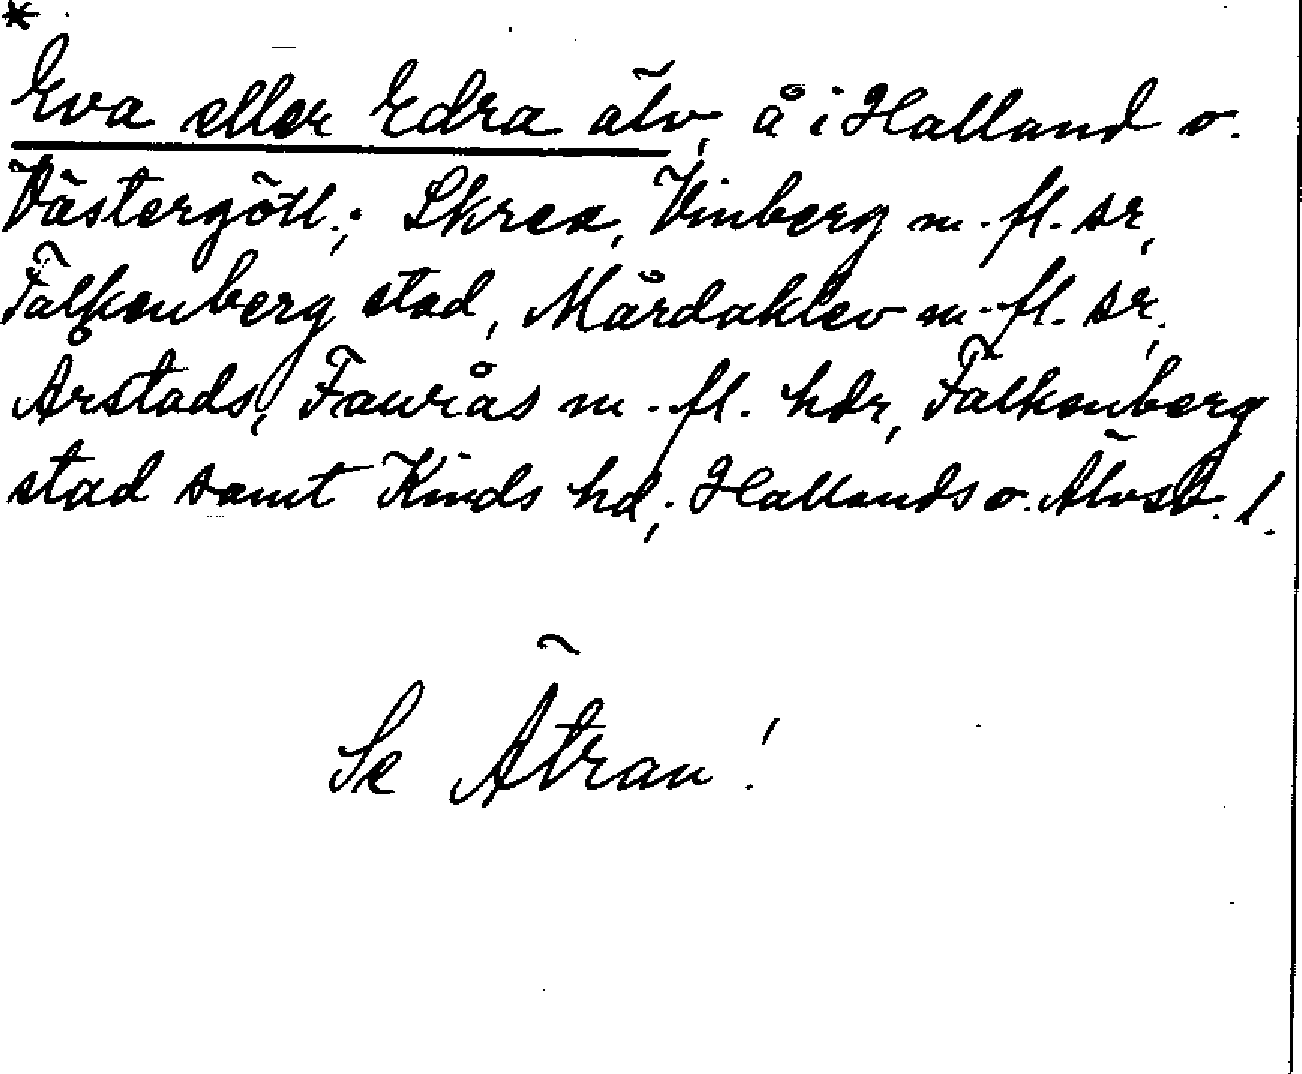 *
Eva eller Edra älv, å i Halland o.
Västergötl.; Skrea, Vinberg m. fl. sr,
Falkenberg stad, Mårdaklev m. fl. sr;
Årstads, Faurås m. fl. hdr, Falkenberg
stad samt Kinds hd; Hallands o. Älvsb. l.
Se Ätran!